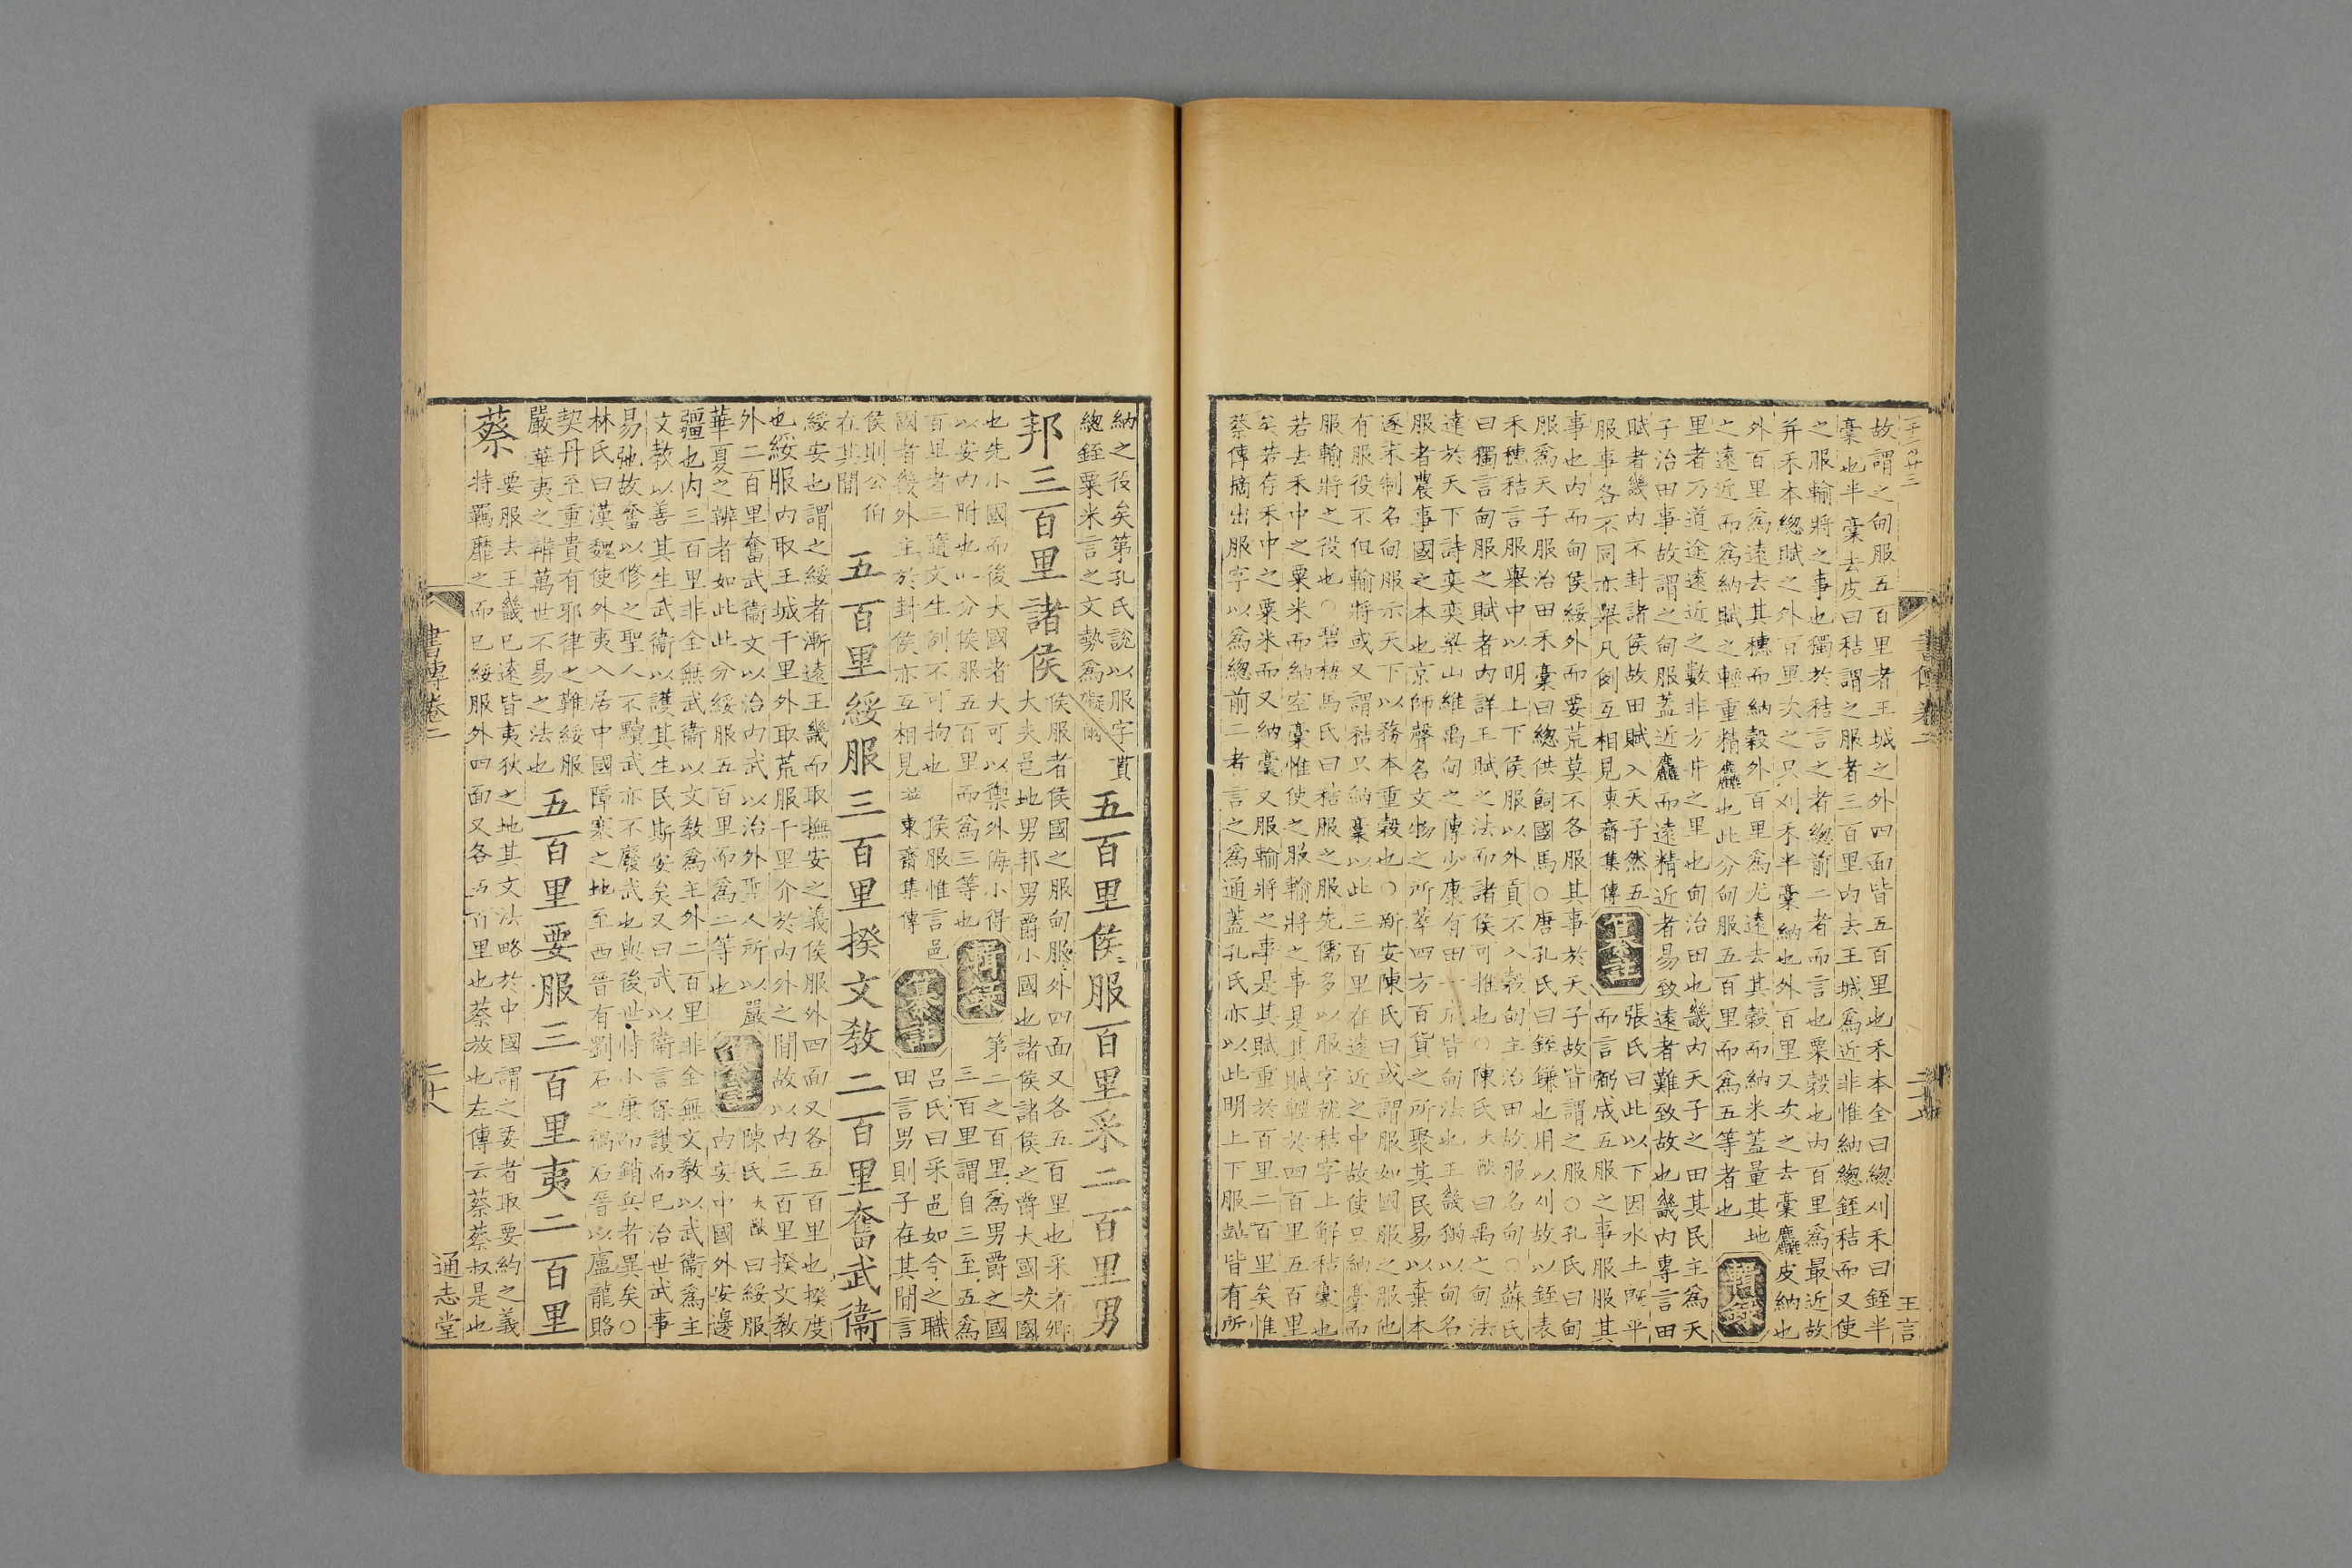 故謂之甸服五百里者王城之外四面皆五百里也禾本全曰總刈禾曰銍半
稾也半稾去皮曰秸謂之服者三百里內去王城爲近非惟納總銍秸而又使
之服輸將之事也獨於秸言之者總前二者而言也粟穀也內百里爲最近故
并禾本總賦之外百里次之只刈禾半稾納也外百里又次之去稾麤皮納也
外百里爲遠去其穗而納穀外百里爲尤遠去其穀而納米蓋量其地
之遠近而爲納賦之輕重精麤也此分甸服五百里而爲五等者也
輯錄
王言
里者乃道途遠近之數非方井之里也甸治田也畿內天子之田其民主爲天
子治田事故謂之甸服蓋近麤而遠精近者易致遠者難致故也畿內專言田
賦者畿內不封諸侯故田賦入天子然五
服事各不同亦舉凡例互相見東齋集傳
纂註
張氏曰此以下因水土旣平
而言弼成五服之事服服其
事也內而甸侯綏外而要荒莫不各服其事於天子故皆謂之服○孔氏曰甸
服爲天子服治田禾稾曰總供飼國馬○唐孔氏曰銍鎌也用以刈故以銍表
禾穗秸言服舉中以明上下侯服以外貢不入穀甸主治田故服名甸○蘇氏
曰獨言甸服之賦者內詳王賦之法而諸侯可推也○陳氏大猷曰禹之甸法
達於天下詩奕奕梁山維禹甸之傳少康有田一成皆甸法也王畿獨以甸名
服者農事國之本也京師聲名文物之所萃四方百貨之所聚其民易以棄本
逐末制名甸服示天下以務本重穀也○新安陳氏曰或謂服如國服之服他
有服役不但輸將或又謂秸只納稾以此三百里在遠近之中故使只納稾而
服輸將之役也○碧梧馬氏曰秸服之服先儒多以服字就秸字上解秸稾也
若去禾中之粟米而納空稾惟使之服輸將之事是其賦輕於四百里五百里
矣若存禾中之粟米而又納稾又服輸將之事是其賦重於百里二百里矣惟
蔡傳摘出服字以爲總前二者言之爲通蓋孔氏亦以此明上下服皆有所
納之役矣第孔氏說以服字貫
總銍粟米言之文勢爲礙爾
五百里侯服百里采二百里男
邦三百里諸侯
侯服者侯國之服甸服外四面又各五百里也采者卿
大夫邑地男邦男爵小國也諸侯諸侯之爵大國次國
也先小國而後大國者大可以禦外侮小得
以安內附也此分侯服五百里而爲三等也
輯錄
第二之百里爲男爵之國
三百里謂自三至五爲
百里者三隨文生例不可拘也
國者畿外主於封侯亦互相見
侯服惟言邑
並東齋集傳
纂註
呂氏曰采邑如今之職
田言男則子在其間言
侯則公伯
在其間
五百里綏服三百里揆文敎二百里奮武衞
綏安也謂之綏者漸遠王畿而取撫安之義侯服外四面又各五百里也揆度
也綏服內取王城千里外取荒服千里介於內外之間故以內三百里揆文敎
外二百里奮武衞文以治內武以治外聖人所以嚴
華夏之辨者如此此分綏服五百里而爲二等也
纂註
陳氏大猷曰綏服
內安中國外安邊
疆也內三百里非全無武衞以文敎爲主外二百里非全無文敎以武衞爲主
文敎以善其生武衞以護其生民斯安矣又曰武以衞言保護而已治世武事
易弛故奮以修之聖人不黷武亦不廢武也與後世恃小康而銷兵者異矣○
林氏曰漢魏使外夷入居中國障塞之地至西晉有劉石之禍石晉以盧龍賂
契丹至重貴有耶律之難綏服
嚴華夷之辨萬世不易之法也
五百里要服三百里夷二百里
蔡
要服去王畿已遠皆夷狄之地其文法略於中國謂之要者取要約之義
特羈靡之而已綏服外四面又各五百里也蔡放也左傳云蔡蔡叔是也
書傳卷二
二十八
通志堂